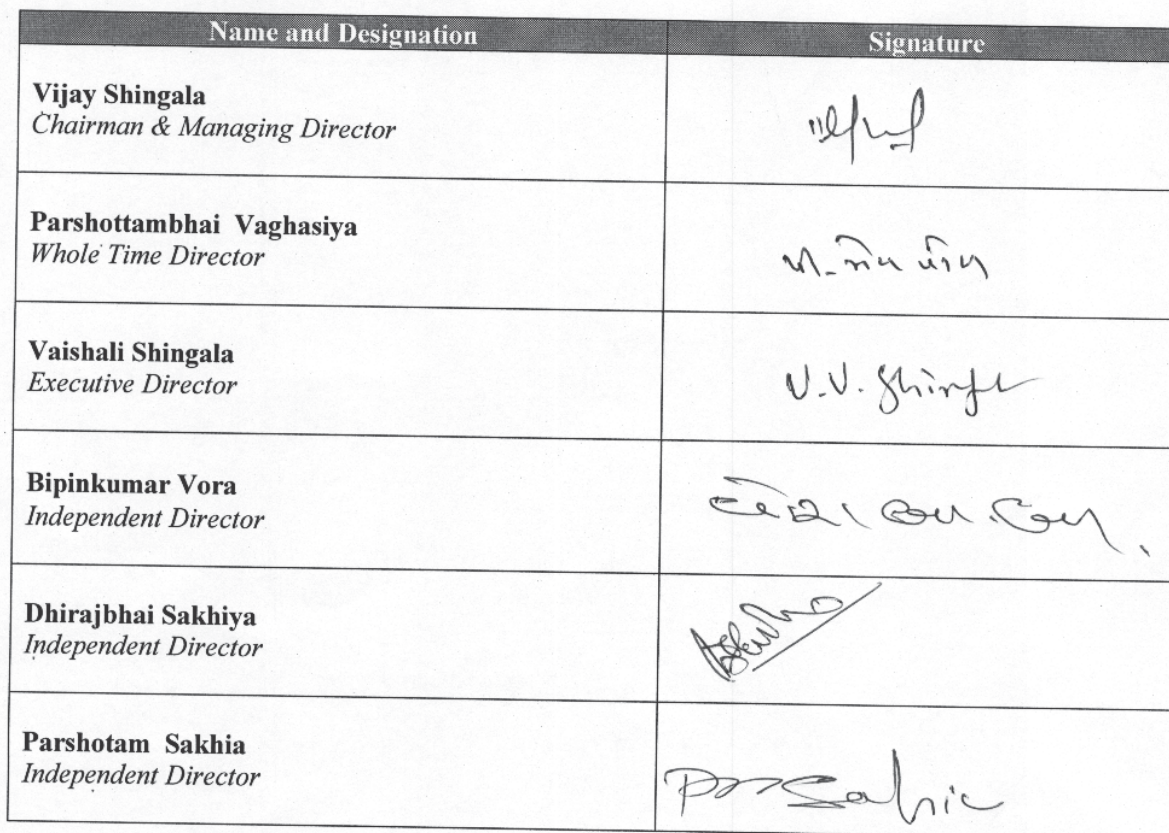 Name and Designation Signature
Vijay Shingala
Chairman & Managing Director
Parshottambhai Vaghasiya
Whole Time Director
Vaishali Shingala
Executive Director
V.V. Shingl
Bipinkumar Vora
Independent Director
Dhirajbhai Sakhiya
Independent Director
Parshotam Sakhia
Independent Director